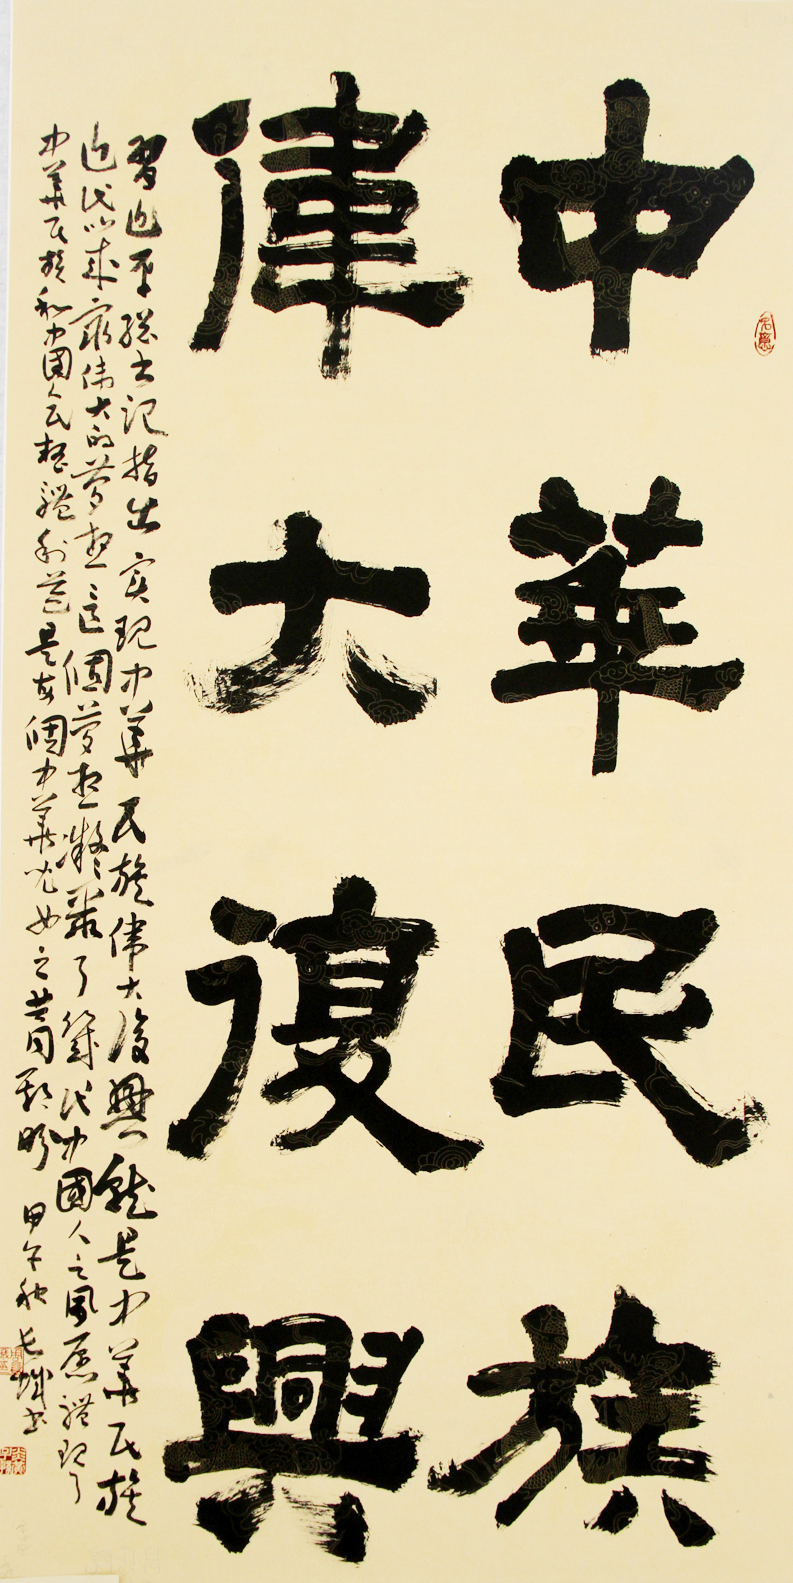 中華民族
偉大復興
習近平總书记指出实现中華民族伟大復興就是中華民族
近代以来最伟大的夢想這個夢想凝聚了幾代中國人之夙愿體现了
中華民族和中國人民整體利益是每個中華兒女之共同期盼 甲午秋 长城书